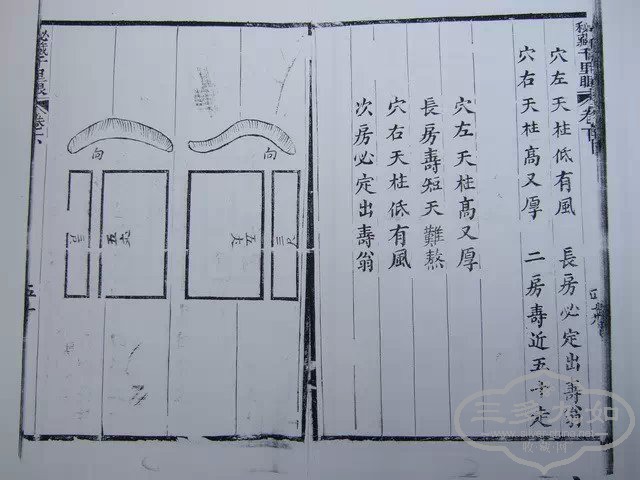 秘藏千里眼
穴左天柱低有風 長房必定出壽翁
穴右天柱髙又厚 二房壽近五十定
穴左天柱髙又厚
長房壽短天難熬
穴右天柱低有風
次房必定出壽翁
向
三尺
五丈
向
三尺
秘藏千里眼